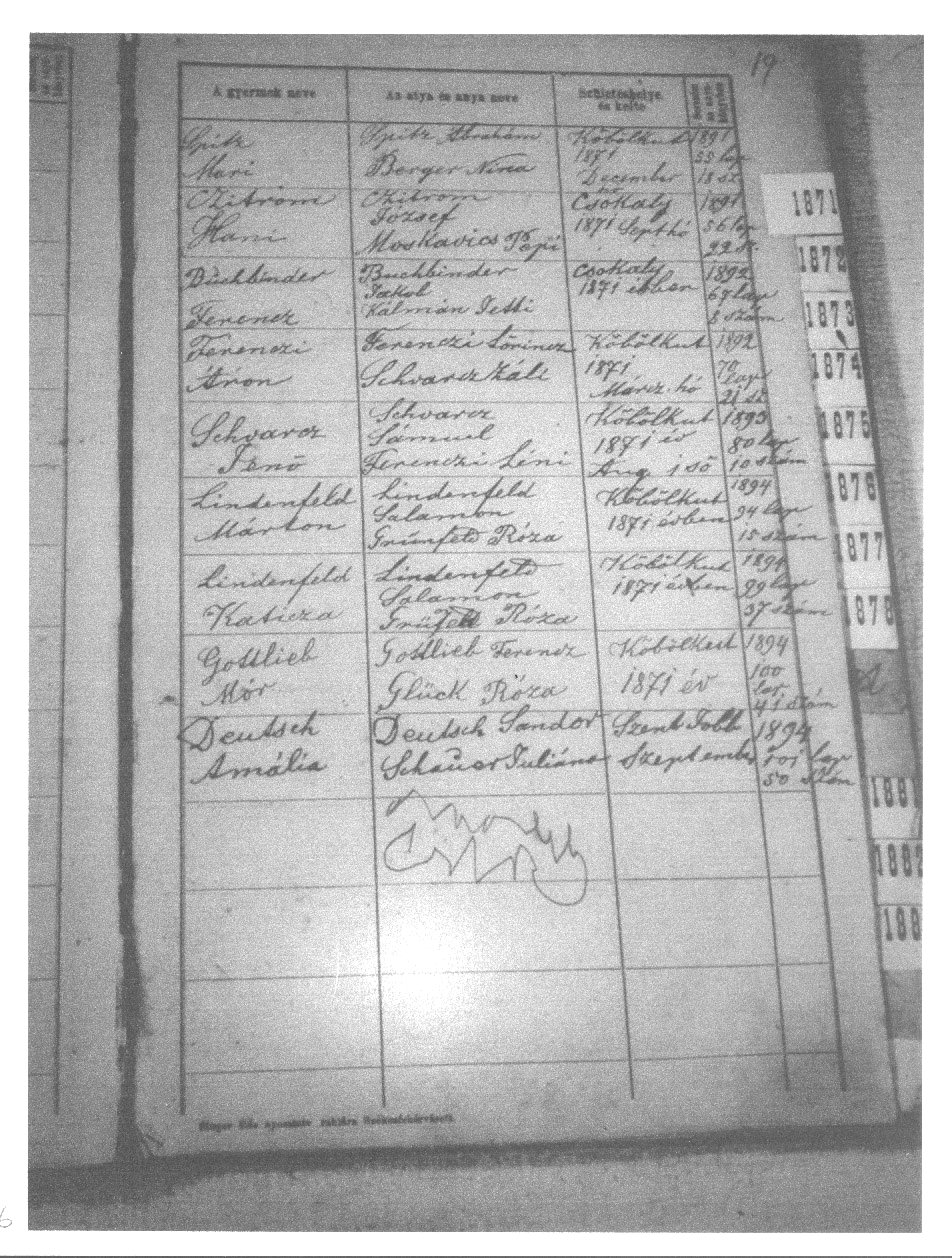 19
A gyermek neve
Az atya és anya neve
Születéshelye
és kelte
Spitz
Mari
Spitz Abrahám
Berger Nina
Köbölkut
1871
December
hó
1891
55 lap
18 sz
Czitrom
Hani
Czitrom
József
Moskavics Pepi
Csokaly
1871 Septhó
1891
56 lap
22 sz.
Buchbinder
Ferencz
Buchbinder
Jakob
Kálmán Jetti
Csokaly
1871 évben
1892
67 lap
8 szám
Ferenczi
Áron
Ferenczi Lörincz
Schvarcz Záli
Köbölkut
1871
Márcz hó
1892
70
lap
21 sz
Schvarcz
Jenö
Schvarcz
Sámuel
Ferenczi Léni
Köbölkut
1871 év
Aug 1 sö
1893
80 lap
10 szám
Lindenfeld
Márton
Lindenfeld
Salamon
Grünfeld Róza
Köbölkut
1871 évben
1894
94 lap
15 szám
Lindenfeld
Katicza
Lindenfeld
Salamon
Róza
Köbölkut
1871 évben
1894
99 lap
37 szám
Gottlieb
Mór
Gottlieb Ferencz
Glück Róza
Köbölkut
1871 év
1894
100
lap
41 szám
Deutsch
Amália
Deutsch Sandor
Schauer Juliána
Szent
Szeptember
1894
101 lap
50 szám
1871
1872
1873
1874
1875
1876
1877
1878
1881
1882
188
6